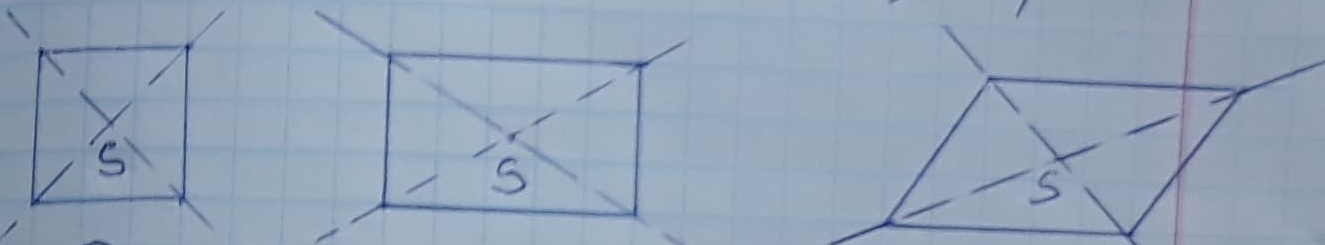 S S S